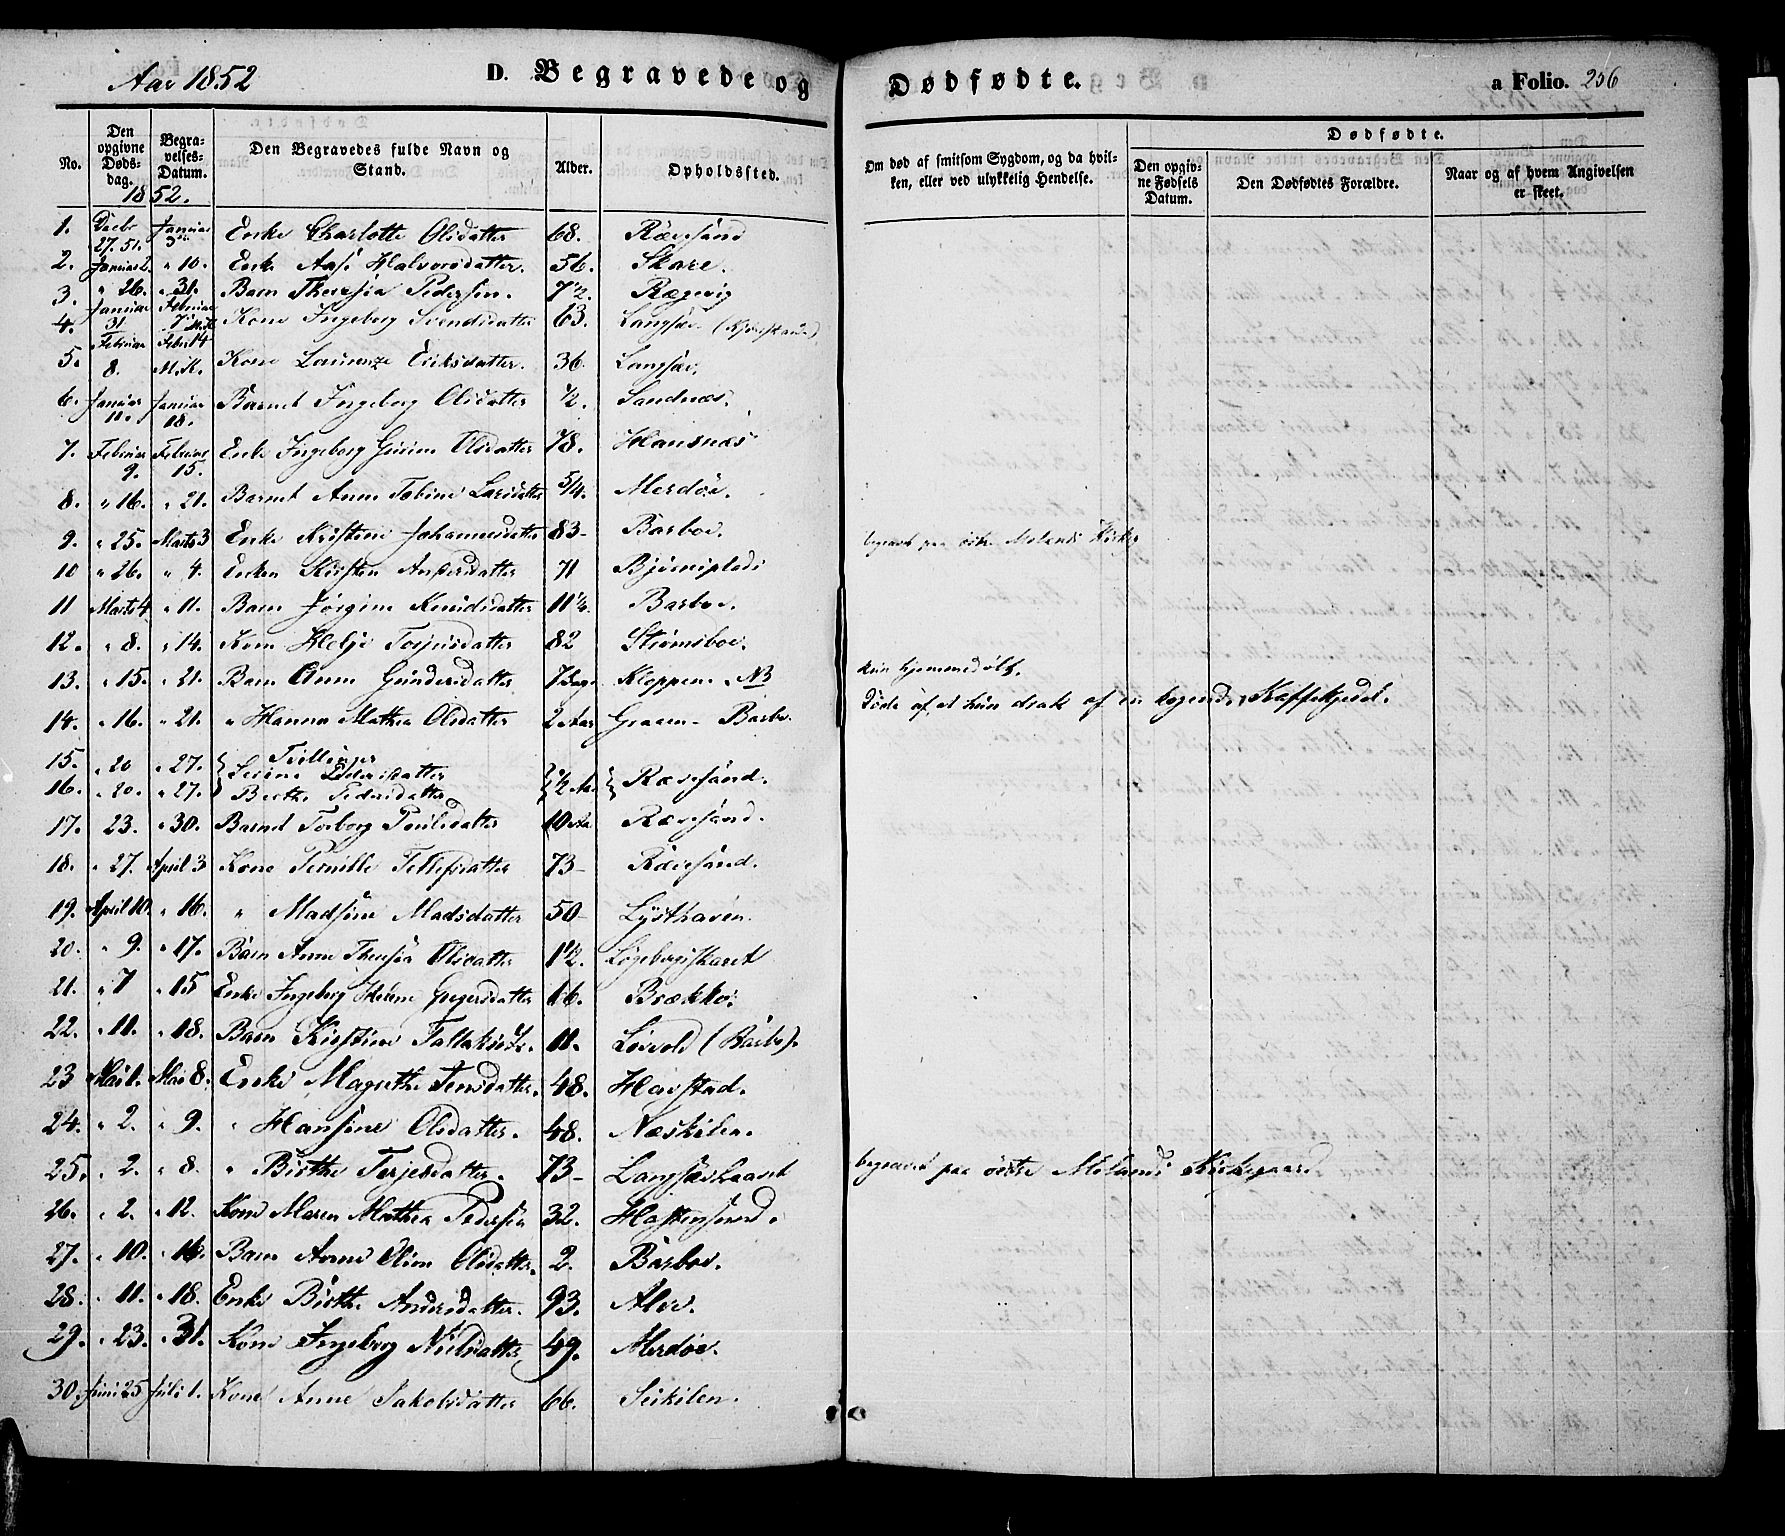 Aar 1852
D. Begravede og
Dødfødte.
a Folio. 256
No.
Den opgivne Døds-dag.
Begra-velses-Datum.
Den Begravedes fulde Navn og Stand.
Alder.
Opholdssted.
Om død af smitsom Sygdom, og da hvil-ken, eller ved ulykkelig Hendelse.
Dødfødte.
Den opgiv-ne Fødsels Datum.
Den Dødfødtes Forældre.
Naar og af hvem Angivelsen er skeet.
1852.
1. Decbr 27. 51. Januar 3 Enke Charlotte Olsdatter 68. Rævesand
2. Januar 2. " 10. Enke Aase Halvorsdatter. 56. Skare.
3. " 26. " 31. Barn Theresia Pedersen. 7 1/2. Rægevig
4. Januar 31 Februar 7 Kone Ingeborg Svendsdatter 63. Langsæv
5. Februar 8. Febr 14 Kone Laurenze Eriksdatter. 36. Langsæv.
6. Januar 11. Januar 18. Barnet Ingeborg Olsdatter 1/2. Sandnæs.
7. Februar 9. Februar 15. Enke Ingeborg Olsdatter 78. Hansnæs
8. " 16. " 21. Barnet Anne Tobine Larsdatter 5/4. Merdøe.
9. " 25. Marts 3 Enke Kristine Johannesdatter 83- Barboe. begravet paa østre Molands Kirke
10 " 26. " 4. Enken Kirsten Andersdatter 71 Bjørnsplads
11 Marts 4 " 11. Barn Jørgine Knudsdatter 11 1/2. Barboe.
12. " 8. " 14. Kone Helje Torjusdatter 82 Strømsboe.
13. " 15. " 21. Barn Anne Gundersdatter 7 Dage Kloppen. NB kun hjemmedøbt.
14. " 16. " 21. " Hanna Mathea Olsdatter 2 Aar Graaen - Barbo. døde af, at hun drak af en kogende Kaffekjedel.
15. " 20 " 27. Tvillinger Serine Pedersdatter
16. " 20. " 27. Berthe Pedersdatter 1/2 Aar Rævesand.
17. 23. " 30. Barnet Torborg Poulsdatter 10 Aar Rævesand.
18. " 27. April 3 Kone Pernille Tellefsdatter 73- Rævesand.
19. April 10. " 16. " Madsine Madsdatter 50- Lysthaven.
20. " 9. " 17. Barn Anne Theresia Olsdatter 1 1/2. Løgebergskaret
21. " 7 " 15 Enke Ingeborg Gregersdatter 66. Brække.
22. " 11. " 18. Barn Kirstine Tallaksd. 11. Løvold (Barbo).
23 Mai 1. Mai 8. Enke Magrethe Jensdatter. 48. Havstad.
24. " 2. " 9. " Hansine Olsdatter. 48. Næskilen.
25. " 2. " 8. " Birthe Terjesdatter. 73- begravet paa østre Molands Kirkegaard
26. " 2. " 12. Kone Maren Mathea Pedersen 32. Hastensund.
27. " 10. " 16. Barn Anne Oline Olsdatter. 2. Barboe.
28. " 11. " 18. Enke Birthe Andersdatter. 93. Alve.
29. " 23. " 31. Kone Ingeborg Nielsdatter 49. Merdøe.
30. Juni 25 Juli 1. Kone Anne Jakobsdatter 66. Seikilen.